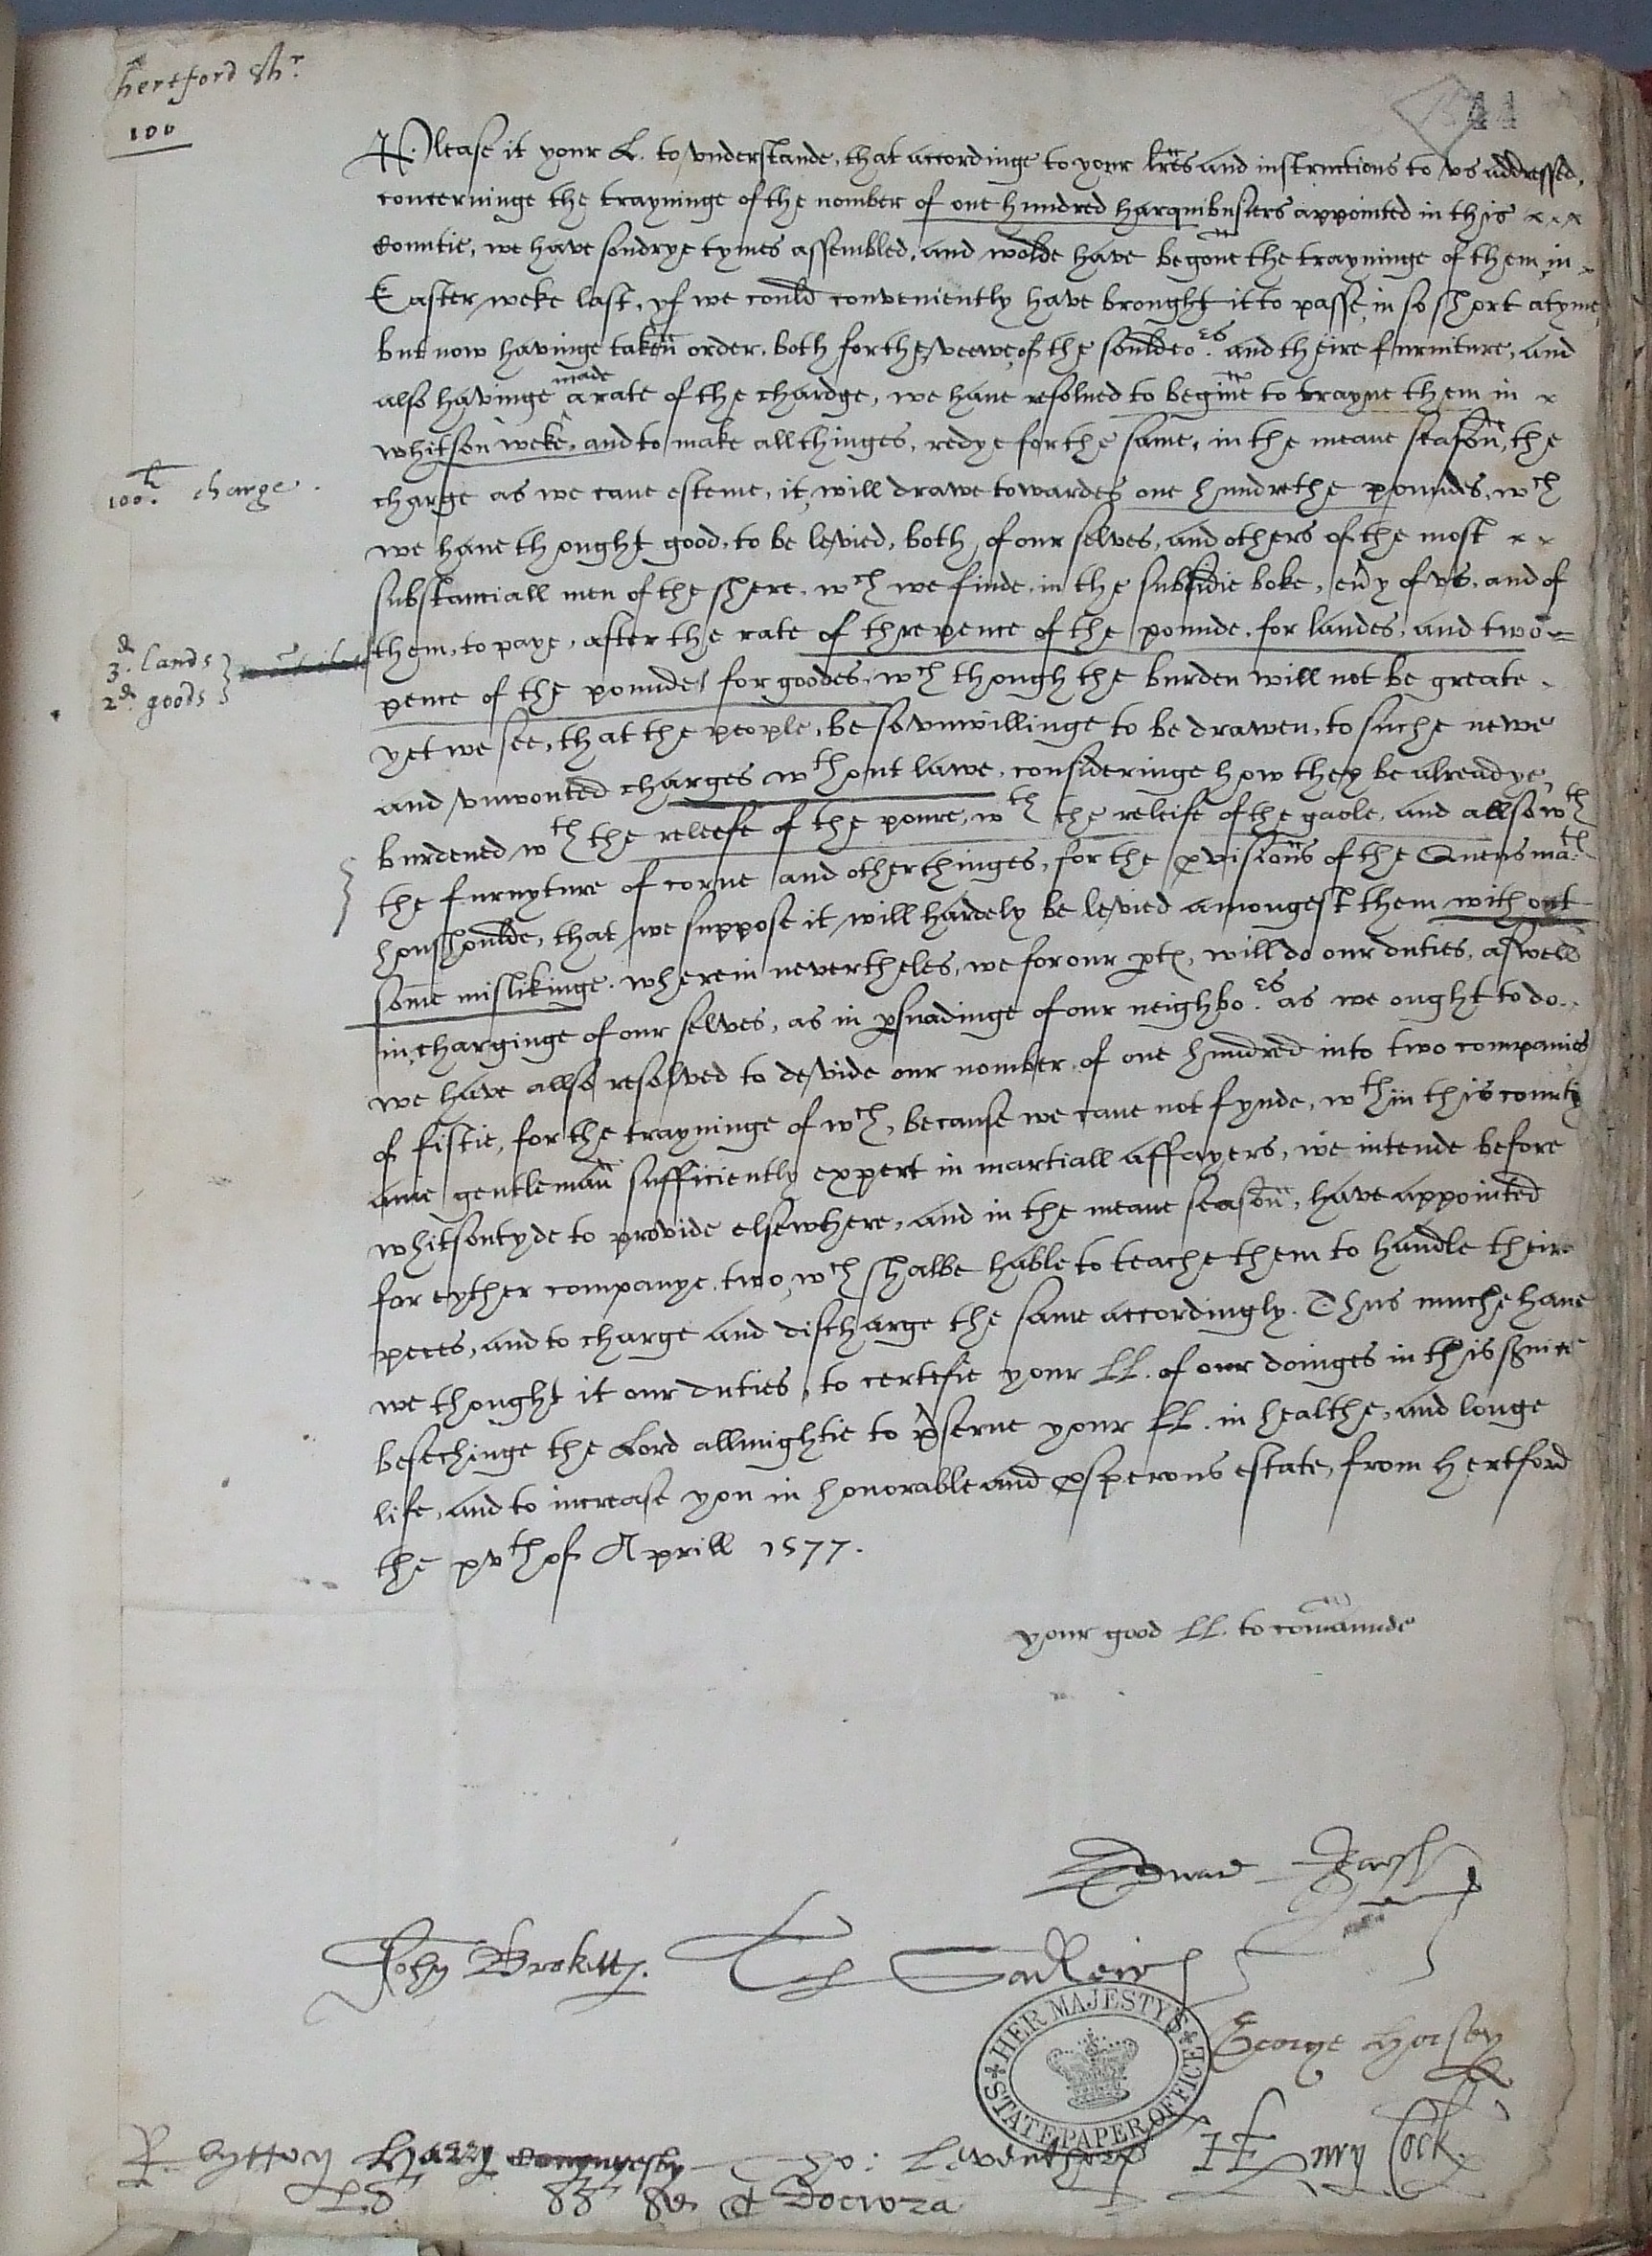 hertford sh^r
100
44
Please it your L. to vnderstande, that accordinge to your lres and instructions to vs addressed,
concerninge the trayninge of the nomber of one hundred harquibusiers appointed in this
Countie, we have sondrye tymes assembled, and wolde have begone the trayninge of them in
Easter weke last, yf we could conveniently have brought it to passe, in so short a tyme,
but now havinge taken order, both for the veewe of the souldeo^rs and theire furniture, and
also havinge made a rate of the chardge, we haue resolued to begine to trayne them in
whitson weke, and to make all thinges, redye for the same, in the meane season, the
100^li charge.
charge as we cane esteme, it will drawe towardes one hundrethe poundes, w^ch
we haue thought good, to be levied, both of our selves, and others of the most
substanciall men of the shere, w^ch we finde, in the subsidie boke, eu^y of vs, and of
3^d. lands
2^d. goods
them, to paye, after the rate of threpence of the pounde, for landes, and two
pence of the pounde, for goodes, w^ch though the burden will not be greate
yet we see, that the people, be so vnwillinge to be drawen, to suche newe
and vnwonted charges w^thout lawe, consideringe how they be alreadye,
burdened w^th the releefe of the poure, w^th the releife of the gaole, and allso w^th
the furnyture of corne and other thinges, for the pvisions of the Quens ma^ts
houshoulde, that we suppose it will hardely be levied amongest them without
some mislikinge. wherein nevertheles, we for our pte, will do our duties, aswell
in charginge of our selves, as in psuadinge of our neighbo^rs as we ought to do.
we have allso resolved to devide our nomber of one hundred into two companies
of fiftie, for the trayninge of w^ch, because we cane not fynde, w^thin this countie
anie gentleman sufficiently expert in martiall affayers, we intende before
whitsontyde to provide elsewhere, and in the meane season, have appointed
for eyther companye, two, w^ch shalbe hable to teache them to handle their
peces, and to charge and discharge the same accordingly. Thus muche haue
we thought it our duties, to certefie your LL. of our doinges in this suice
besechinge the Lord allmightie to pserue your LL. in healthe, and longe
life, and to increase you in honorable and psperous estate, from Hertford
the xv^th of Aprill 1577.
your good LL. to comaunde
John Brokett
Th Sadleir
HER MAJESTY'S STATE PAPER OFFICE
George Horsey
R. Lytton Harry Conyngesby Tho: Leventhorp HEnry Cock
Docwra